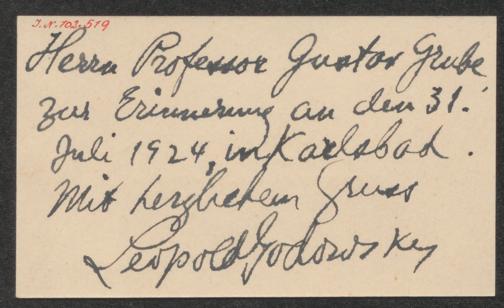 I.N. 103.519
Herrn Professor Gustav Grube
zur Erinnerung an den 31.
Juli 1924, in Karlsbad.
Mit herzlichem Gruss
Leopold Godowsky